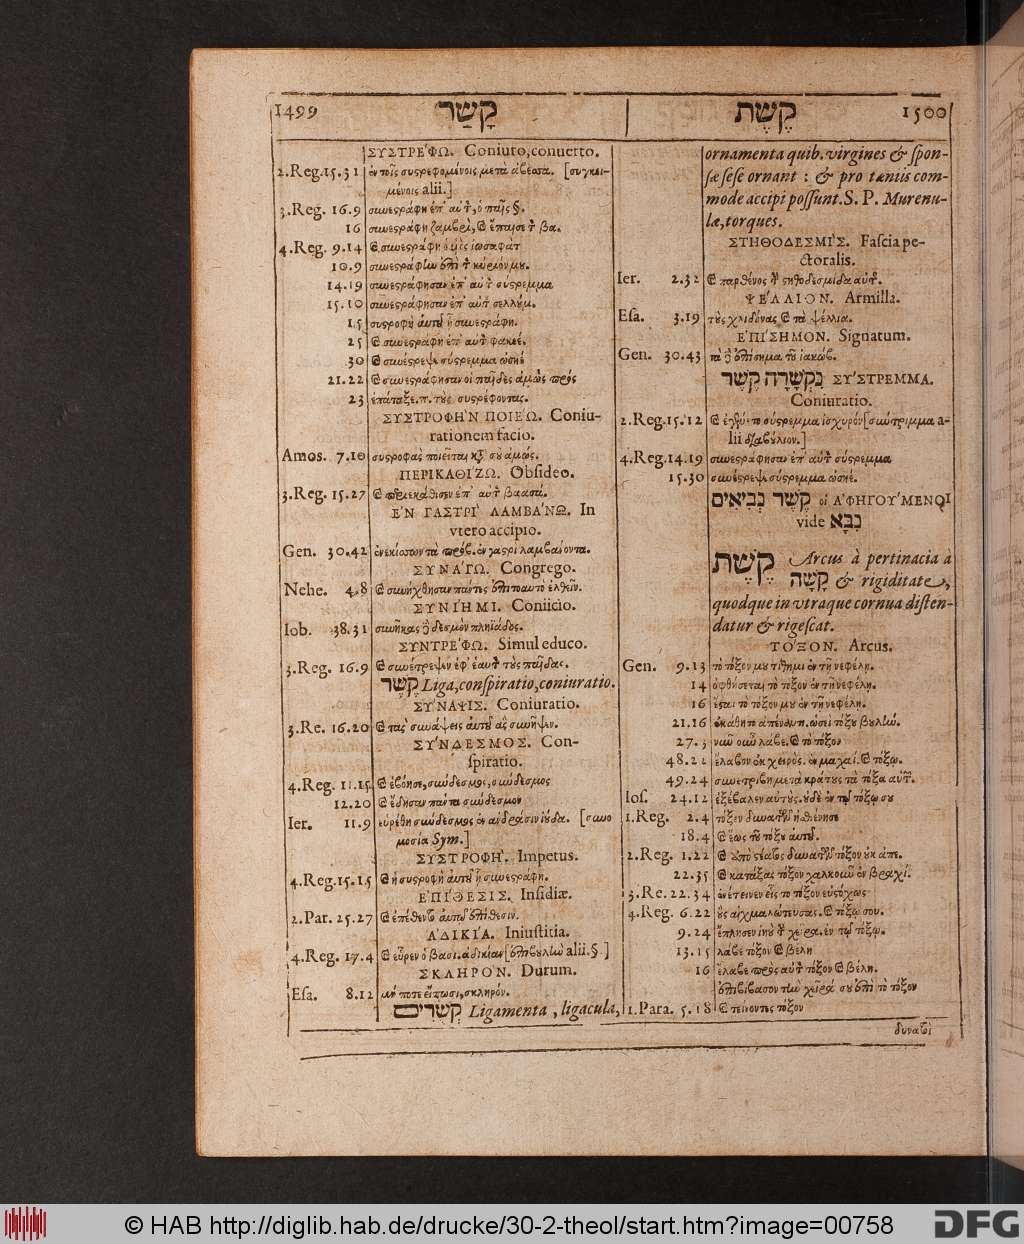 1499 קָשַׁר
ΣΥΣΤΡΕΦΩ. Coniuro, conuerto.
2.Reg.15.31 ἐν τοῖς συστρεφομένοις μετὰ ἀβέσσα. [συγκει-
μένοις alii.]
3.Reg. 16.9 συνεστράφη ἐπ' αὐτὸν, ὁ παῖς §.
16 συνεστράφη ζαμβρὶ, καὶ ἔπαισε τὸν βα.
4.Reg. 9.14 καὶ συνεστράφη ὁ υἱὸς ἰωσαφὰτ
10.9 συνεστράφην ἐπὶ τὸν κύριόν μου.
14.19 συνεστράφησαν ἐπ' αὐτὸν σύστρεμμα
15.10 συνεστράφησαν ἐπ' αὐτὸν σελλούμ.
15 συστροφὴ αὐτοῦ ἣ συνεστράφη.
25 καὶ συνεστράφη ἐπ' αὐτὸν φακεέ.
30 καὶ συνέστρεψε σύστρεμμα ὡσηέ
21.22 καὶ συνεστράφησαν οἱ παῖδες ἀμὼς πρός
23 ἐπάταξε. π. τοὺς συστρέφοντας.
ΣΥΣΤΡΟΦΗΝ ΠΟΙΕΩ. Coniu-
rationem facio.
Amos. 7.10 συστροφὰς ποιεῖται κατὰ σοῦ ἀμώς.
ΠΕΡΙΚΑΘΙΖΩ. Obsideo.
3.Reg. 15.27 καὶ περιεκάθισεν ἐπ' αὐτὸν βαασά.
ἘΝ ΓΑΣΤΡΙ ΛΑΜΒΑΝΩ. In
vtero accipio.
Gen. 30.42 ἐνεκίσσων τὰ πρόβ. ἐν γαστρὶ λαμβάνοντα.
ΣΥΝΑΓΩ. Congrego.
Nehe. 4.8 καὶ συνήχθησαν πάντες ἐπιτοαυτὸ ἐλθεῖν.
ΣΥΝΙΗΜΙ. Coniicio.
Iob. 38.31 συνῆκας δὲ δεσμὸν πλειάδος.
ΣΥΝΤΡΕΦΩ. Simul educo.
3.Reg. 16.9 καὶ συνέτρεψεν ἐφ' ἑαυτὸν τοὺς παῖδας.
קֶשֶׁר Liga, conspiratio, coniuratio.
ΣΥΝΑΨΙΣ. Coniuratio.
3.Re. 16.20 καὶ τὰς συνάψεις αὐτοῦ ἃς συνῆψεν.
ΣΥΝΔΕΣΜΟΣ. Con-
spiratio.
4.Reg. 11.15 καὶ ἐβόησε, σύνδεσμος, σύνδεσμος
12.20 καὶ ἔδησαν πάντα σύνδεσμον
Ier. 11.9 εὑρέθη σύνδεσμος ἐν ἀνδράσιν ἰούδα. [συνω
μοσία Sym.]
ΣΥΣΤΡΟΦΗ. Impetus.
4.Reg.15.15 καὶ ἡ συστροφὴ αὐτοῦ ἣ συνεστράφη.
ΕΠΙΘΕΣΙΣ. Insidiæ.
2.Par. 25.27 καὶ ἐπέθεντο αὐτῷ ἐπίθεσιν.
ΑΔΙΚΙΑ. Iniustitia.
4.Reg. 17.4 καὶ εὗρεν ὁ βασι. ἀδικίαν [ἐπιβουλὴν alii. §.]
ΣΚΛΗΡΟΝ. Durum.
Esa. 8.12 μή ποτε εἴπωσι, σκληρόν.
קִשֻּׁרִים Ligamenta, ligacula,
קֶשֶׁת 1500
ornamenta quib. virgines & spon-
sæ sese ornant: & pro tæniis com-
mode accipi possunt. S. P. Murenu-
læ, torques.
ΣΤΗΘΟΔΕΣΜΙΣ. Fascia pe-
ctoralis.
Ier. 2.32 καὶ παρθένος τὴν στηθοδεσμίδα αὐτῆς.
ΨΕΛΛΙΟΝ. Armilla.
Esa. 3.19 τοὺς χλιδῶνας καὶ τὰ ψέλλια.
ΕΠΙΣΗΜΟΝ. Signatum.
Gen. 30.43 τὰ δὲ ἐπίσημα τοῦ ἰακώβ.
נִקְשָׁרָה קֶשֶׁר ΣΥΣΤΡΕΜΜΑ.
Coniuratio.
2.Reg.15.12 καὶ ἐγένετο σύστρεμμα ἰσχυρόν [σύντριμμα a-
lii διαβούλιον.]
4.Reg.14.19 συνεστράφησαν ἐπ' αὐτὸν σύστρεμμα
15.30 συνέστρεψε σύστρεμμα ὡσηέ.
קֶשֶׁר נְבִיאִים οἱ ΑΦΗΓΟΥΜΕΝΟΙ
vide נְבָא
קֶשֶׁת Arcus à pertinacia à
קָשָׁה & rigiditate,
quodque in vtraque cornua disten-
datur & rigescat.
ΤΟΞΟΝ. Arcus.
Gen. 9.13 τὸ τόξον μου τίθημι ἐν τῇ νεφέλῃ.
14 ὀφθήσεται τὸ τόξον ἐν τῇ νεφέλῃ.
16 ἔσται τὸ τόξον μου ἐν τῇ νεφέλῃ.
21.16 ἐκάθητο ἀπέναντι, ὡσεὶ τόξου βολήν.
27.3 νῦν οὖν λάβε. καὶ τὸ τόξον
48.22 ἔλαβον ἐκ χειρὸς. ἐν μαχαί. καὶ τόξῳ.
49.24 συνετρίβη μετὰ κράτους τὰ τόξα αὐτῶν.
Ios. 24.12 ἐξέβαλεν αὐτοὺς. οὐδὲ ἐν τῷ τόξῳ σου
1.Reg. 2.4 τόξον δυνατῶν ἠσθένησε
18.4 καὶ ἕως τοῦ τόξου αὐτοῦ.
2.Reg. 1.22 καὶ ἀπὸ στέατος δυνατῶν τόξον οὐκ ἀπε.
22.35 καὶ κατάξας τόξον χαλκοῦν ἐν βραχί.
3.Re. 22.34 ἐνέτεινεν εἷς τὸ τόξον εὐστόχως
4.Reg. 6.22 οὓς αἰχμαλώτευσας. καὶ τόξῳ σου.
9.24 ἔπλησεν ἰηοῦ τὴν χεῖρα. ἐν τῷ τόξῳ.
13.15 λάβε τόξον καὶ βέλη
16 ἔλαβε πρὸς αὐτὸν τόξον καὶ βέλη.
ἐπιβίβασον τὴν χεῖρά σου ἐπὶ τὸ τόξον
1.Para. 5.18 καὶ τείνοντες τόξον
δυνατοὶ
© HAB http://diglib.hab.de/drucke/30-2-theol/start.htm?image=00758
DFG